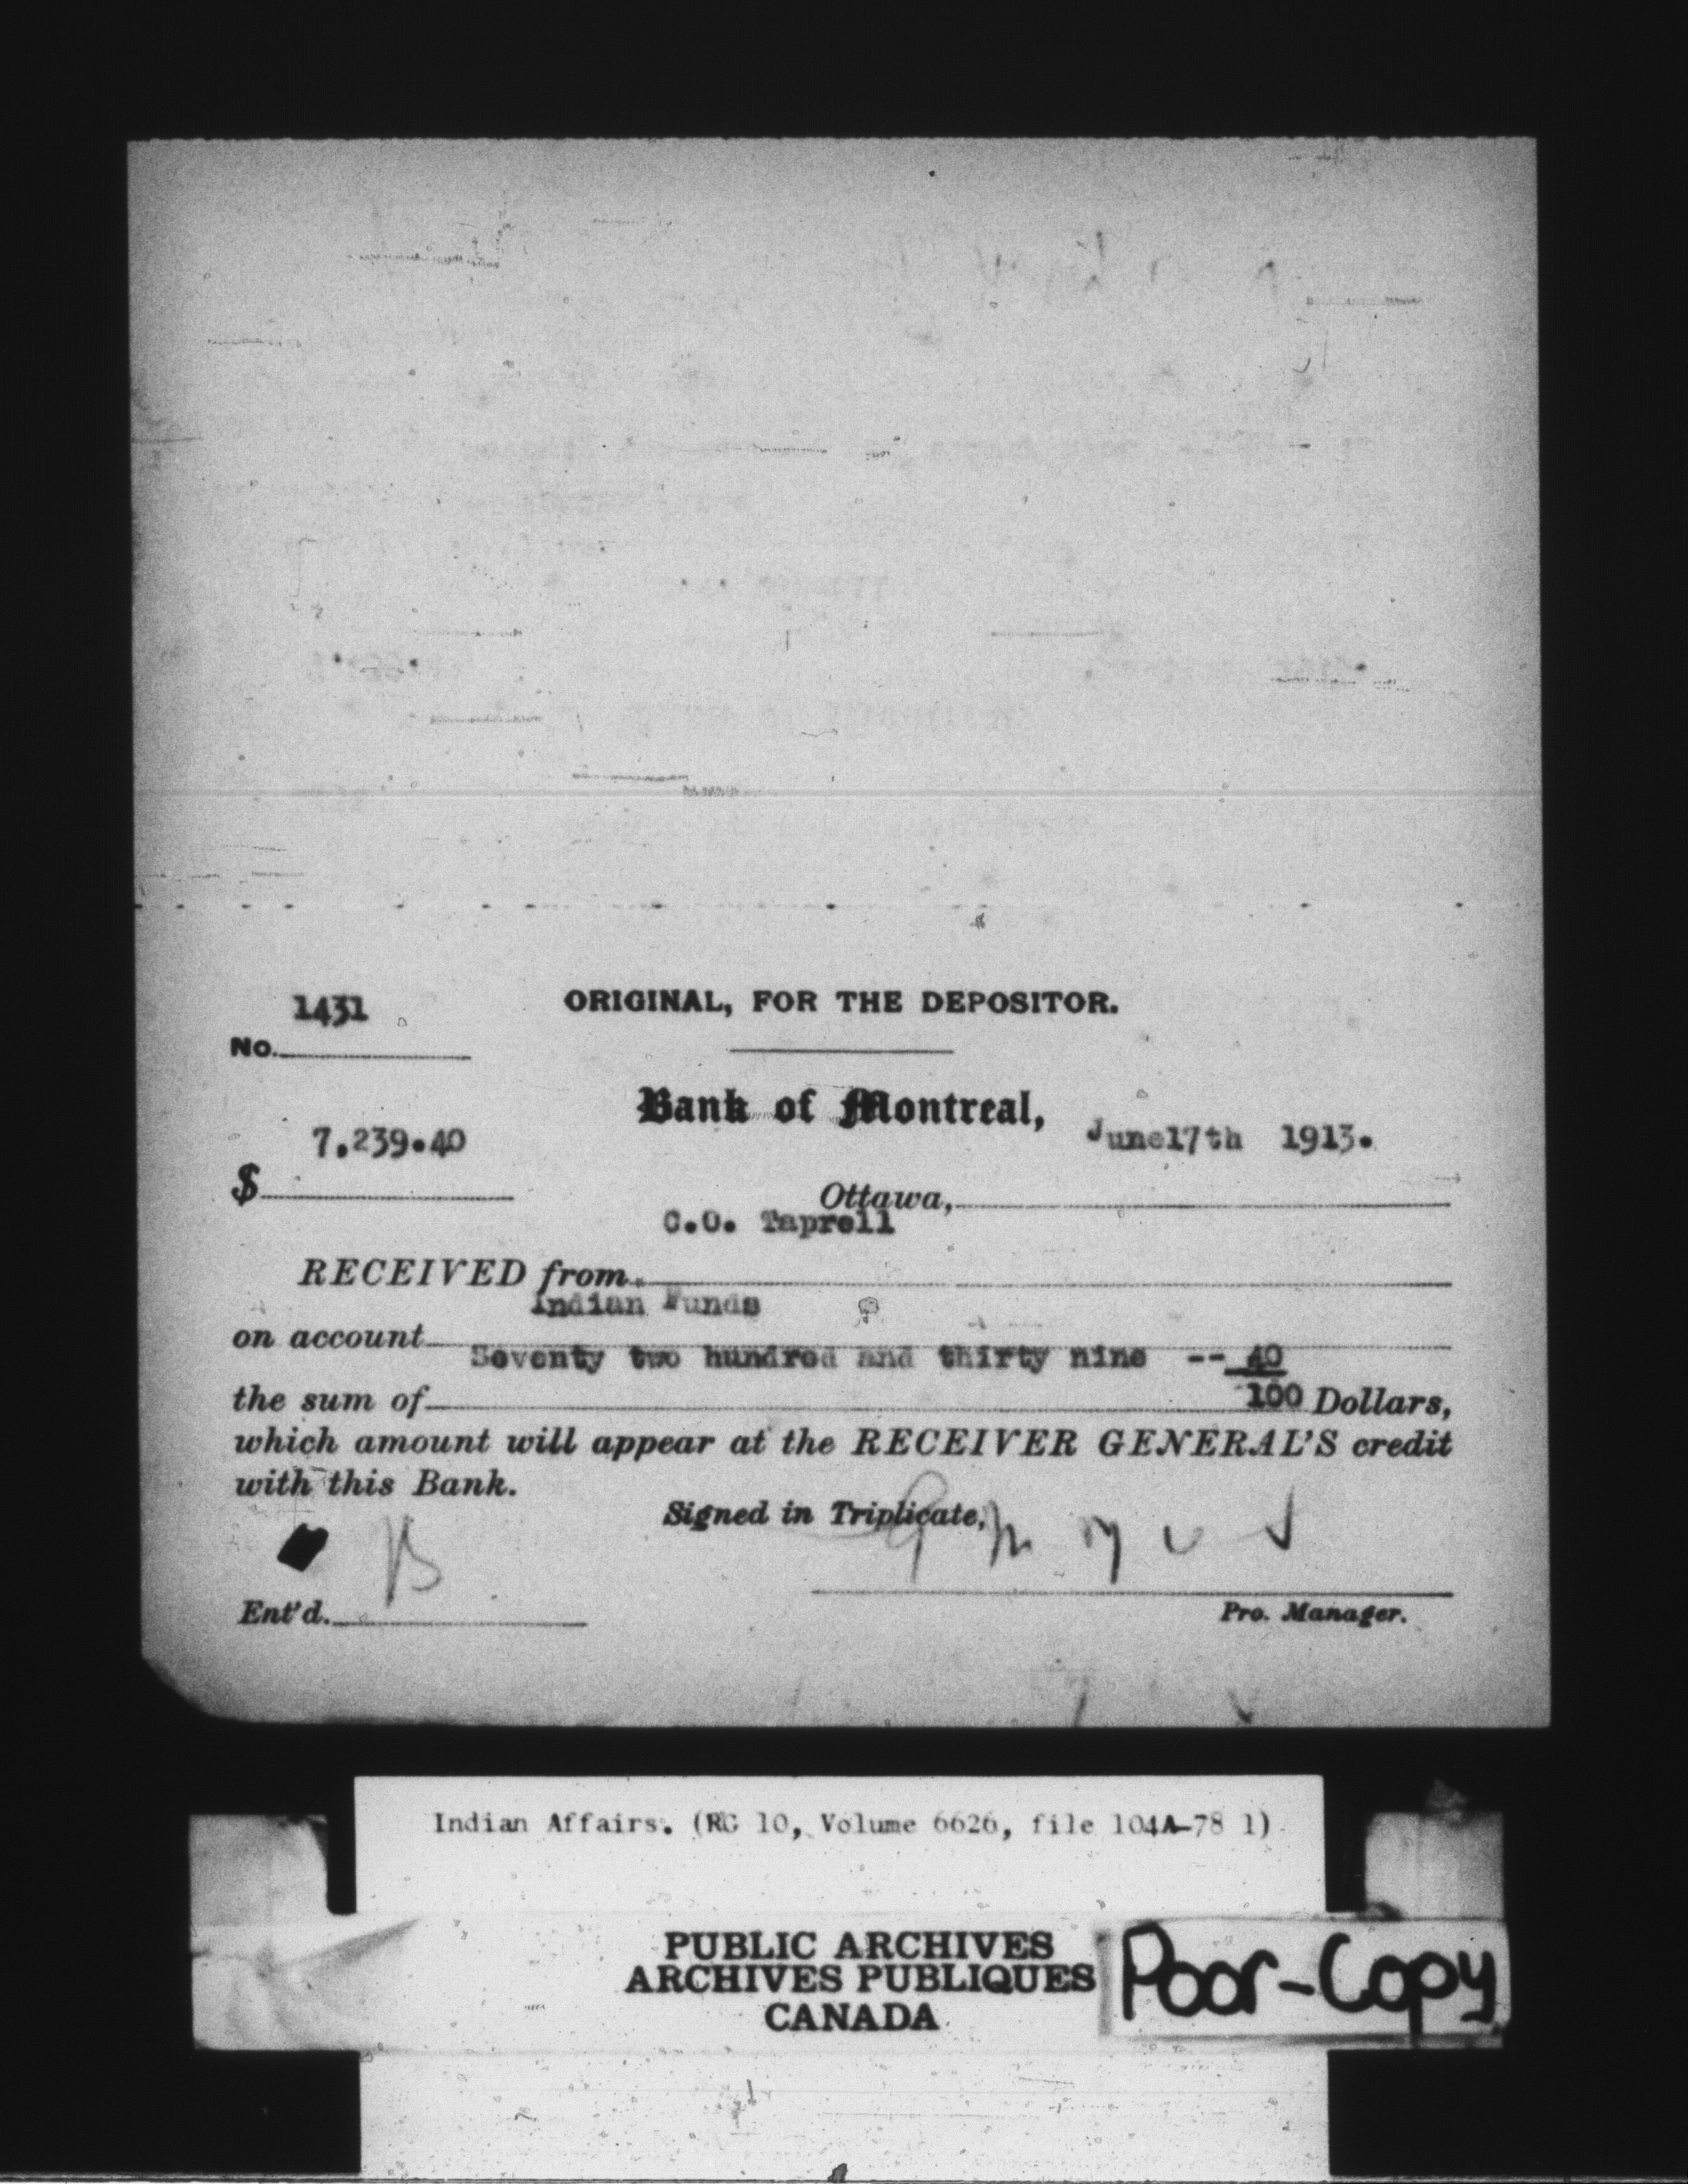 1431
ORIGINAL, FOR THE DEPOSITOR.
No.
Bank of Montreal,
7.239.40
June17th 1913.
$
Ottawa,
C.O. Taprell
RECEIVED from
Indian Funds
on account
Seventy two hundred and thirty nine -- 40
the sum of 100 Dollars,
which amount will appear at the RECEIVER GENERAL'S credit
with this Bank.
Signed in Triplicate,
B
Ent'd.
Pro. Manager.
Indian Affairs. (RG 10, Volume 6626, file 104A-78 1)
PUBLIC ARCHIVES
ARCHIVES PUBLIQUES
CANADA
Poor-Copy